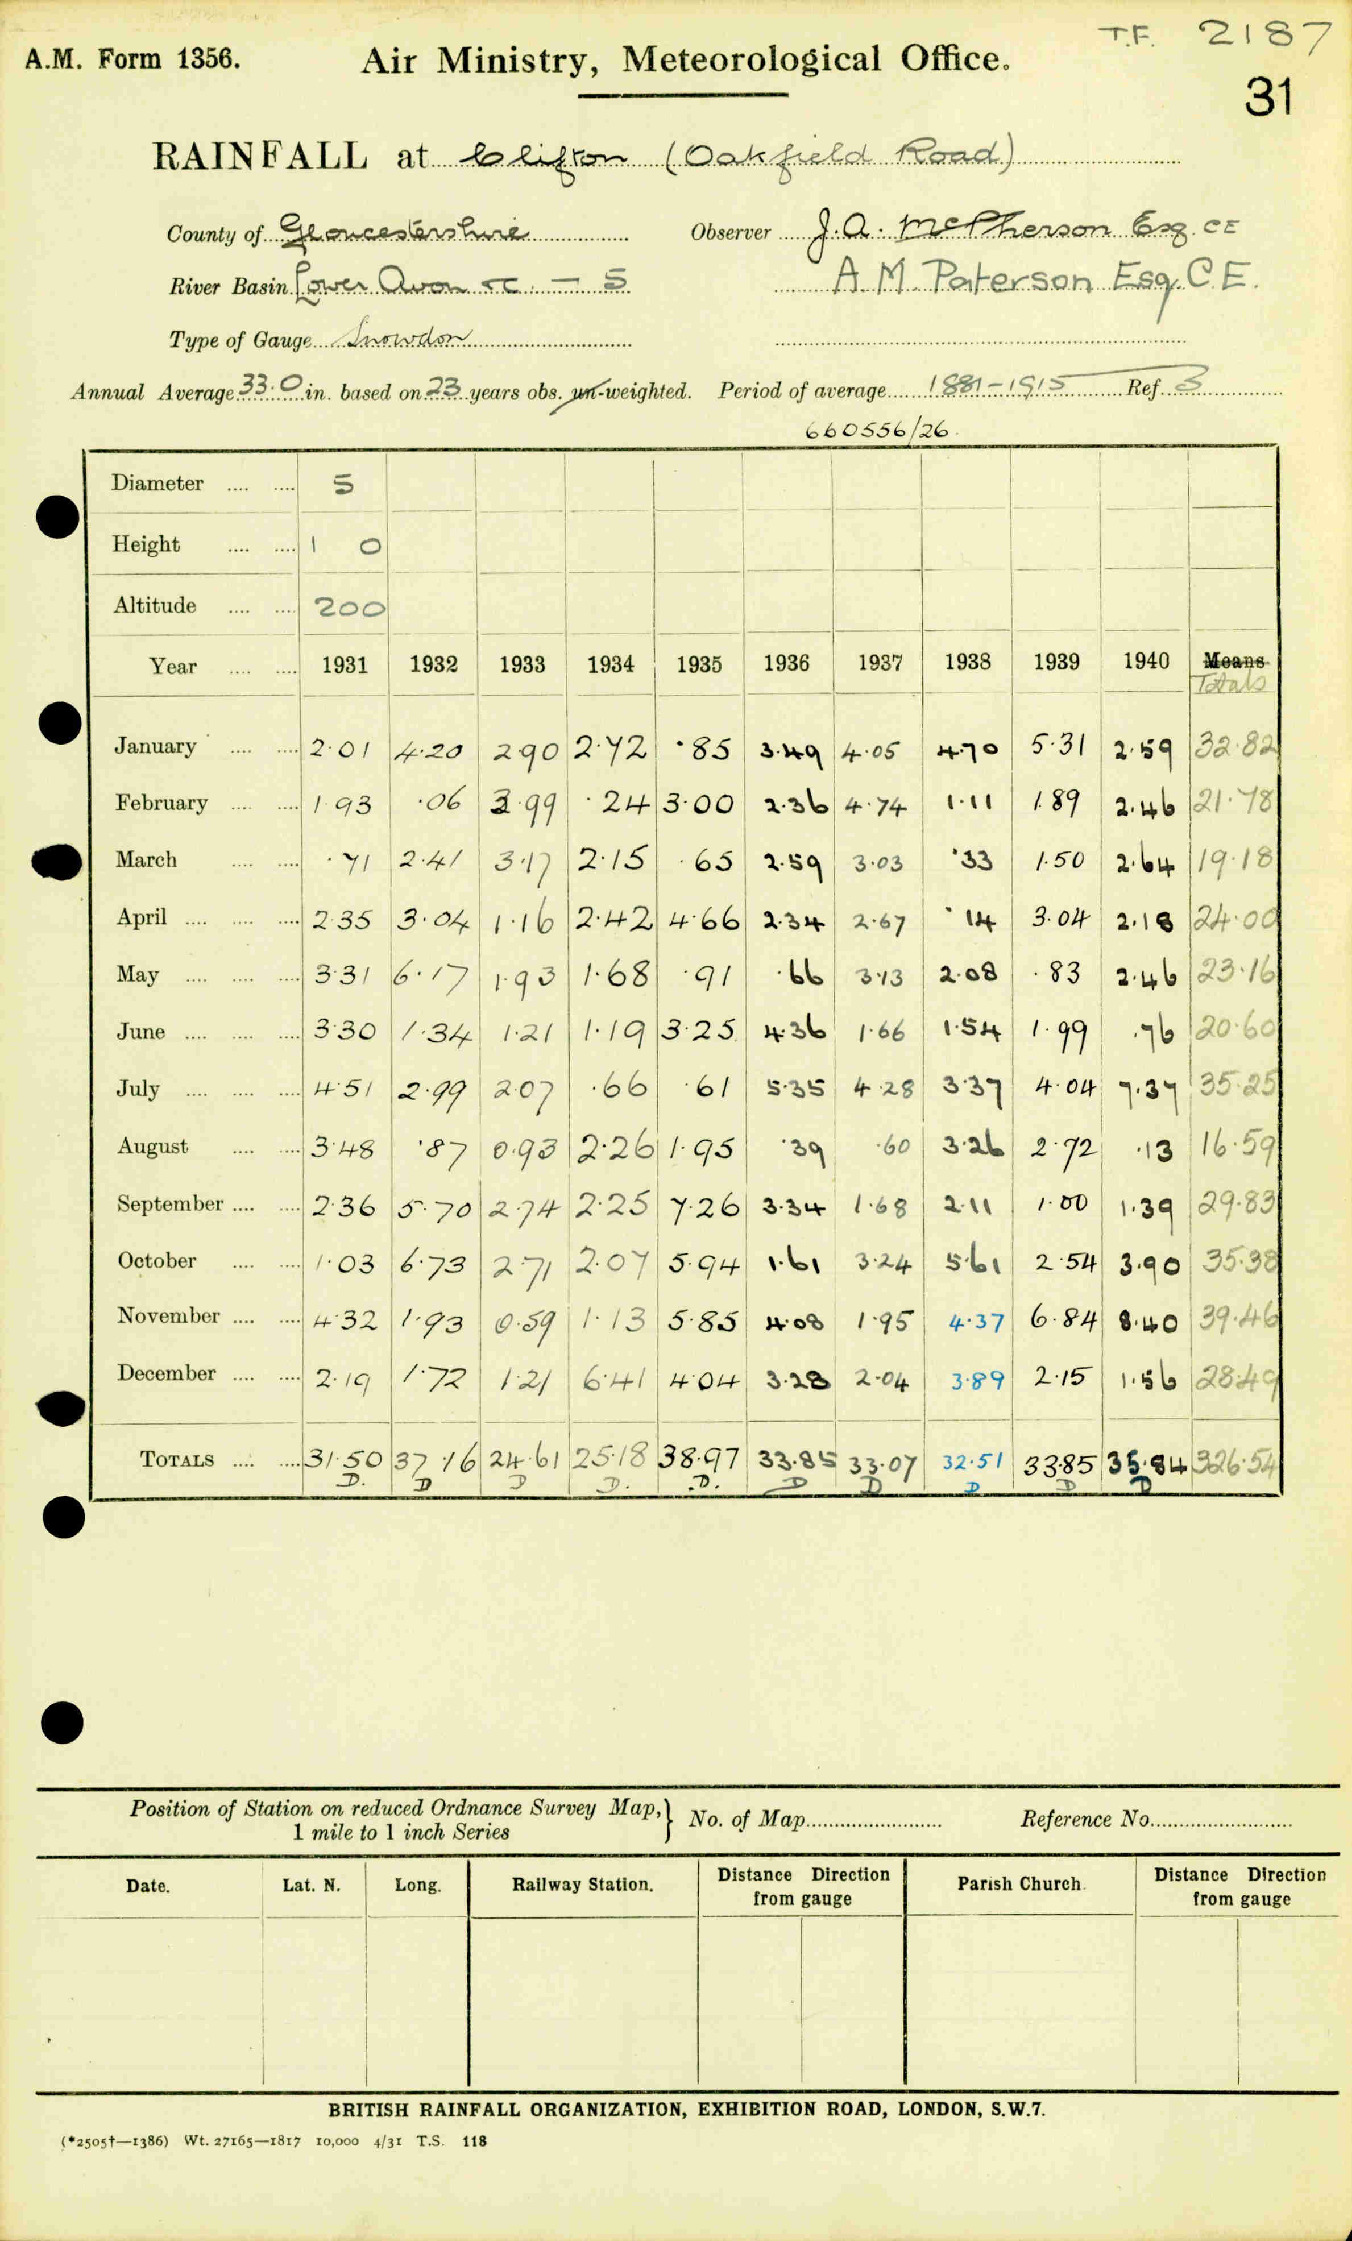 T.F. 2187
A.M. Form 1356. Air Ministry, Meteorological Office.
31
RAINFALL at Clifton (Oakfield Road)
County of Gloucestershire Observer J.A. McPherson Esq. CE
River Basin Lower Avon &c. — S A M. Paterson Esq. C.E.
Type of Gauge Snowdon
Annual Average 33.0 in. based on 23 years obs. un-weighted. Period of average 1881-1915 Ref. 3
660556/26
Diameter .... .... 5
Height .... .... 1 0
Altitude .... .... 200
Year .... .... 1931 1932 1933 1934 1935 1936 1937 1938 1939 1940 Means
Totals
January .... .... 2.01 4.20 2.90 2.72 .85 3.49 4.05 4.70 5.31 2.59 32.82
February .... .... 1.93 .06 3.99 .24 3.00 2.36 4.74 1.11 1.89 2.46 21.78
March .... .... .71 2.41 3.17 2.15 .65 2.59 3.03 .33 1.50 2.64 19.18
April .... .... .... 2.35 3.04 1.16 2.42 4.66 2.34 2.67 .14 3.04 2.18 24.00
May .... .... .... 3.31 6.17 1.93 1.68 .91 .66 3.13 2.08 .83 2.46 23.16
June .... .... .... 3.30 1.34 1.21 1.19 3.25 4.36 1.66 1.54 1.99 .76 20.60
July .... .... .... 4.51 2.99 2.07 .66 .61 5.35 4.28 3.37 4.04 7.37 35.25
August .... .... 3.48 .87 0.93 2.26 1.95 .39 .60 3.26 2.72 .13 16.59
September .... .... 2.36 5.70 2.74 2.25 7.26 3.34 1.68 2.11 1.00 1.39 29.83
October .... .... 1.03 6.73 2.71 2.07 5.94 1.61 3.24 5.61 2.54 3.90 35.38
November .... .... 4.32 1.93 0.59 1.13 5.85 4.08 1.95 4.37 6.84 8.40 39.46
December .... .... 2.19 1.72 1.21 6.41 4.04 3.28 2.04 3.89 2.15 1.56 28.49
TOTALS .... .... 31.50 37.16 24.61 25.18 38.97 33.85 33.07 32.51 33.85 35.84 326.54
D. D D D. D. D D D D D
Position of Station on reduced Ordnance Survey Map, } No. of Map Reference No.
1 mile to 1 inch Series
Date. Lat. N. Long. Railway Station. Distance Direction from gauge Parish Church. Distance Direction from gauge
BRITISH RAINFALL ORGANIZATION, EXHIBITION ROAD, LONDON, S.W.7.
(*2505†—1386) Wt. 27165—1817 10,000 4/31 T.S. 118